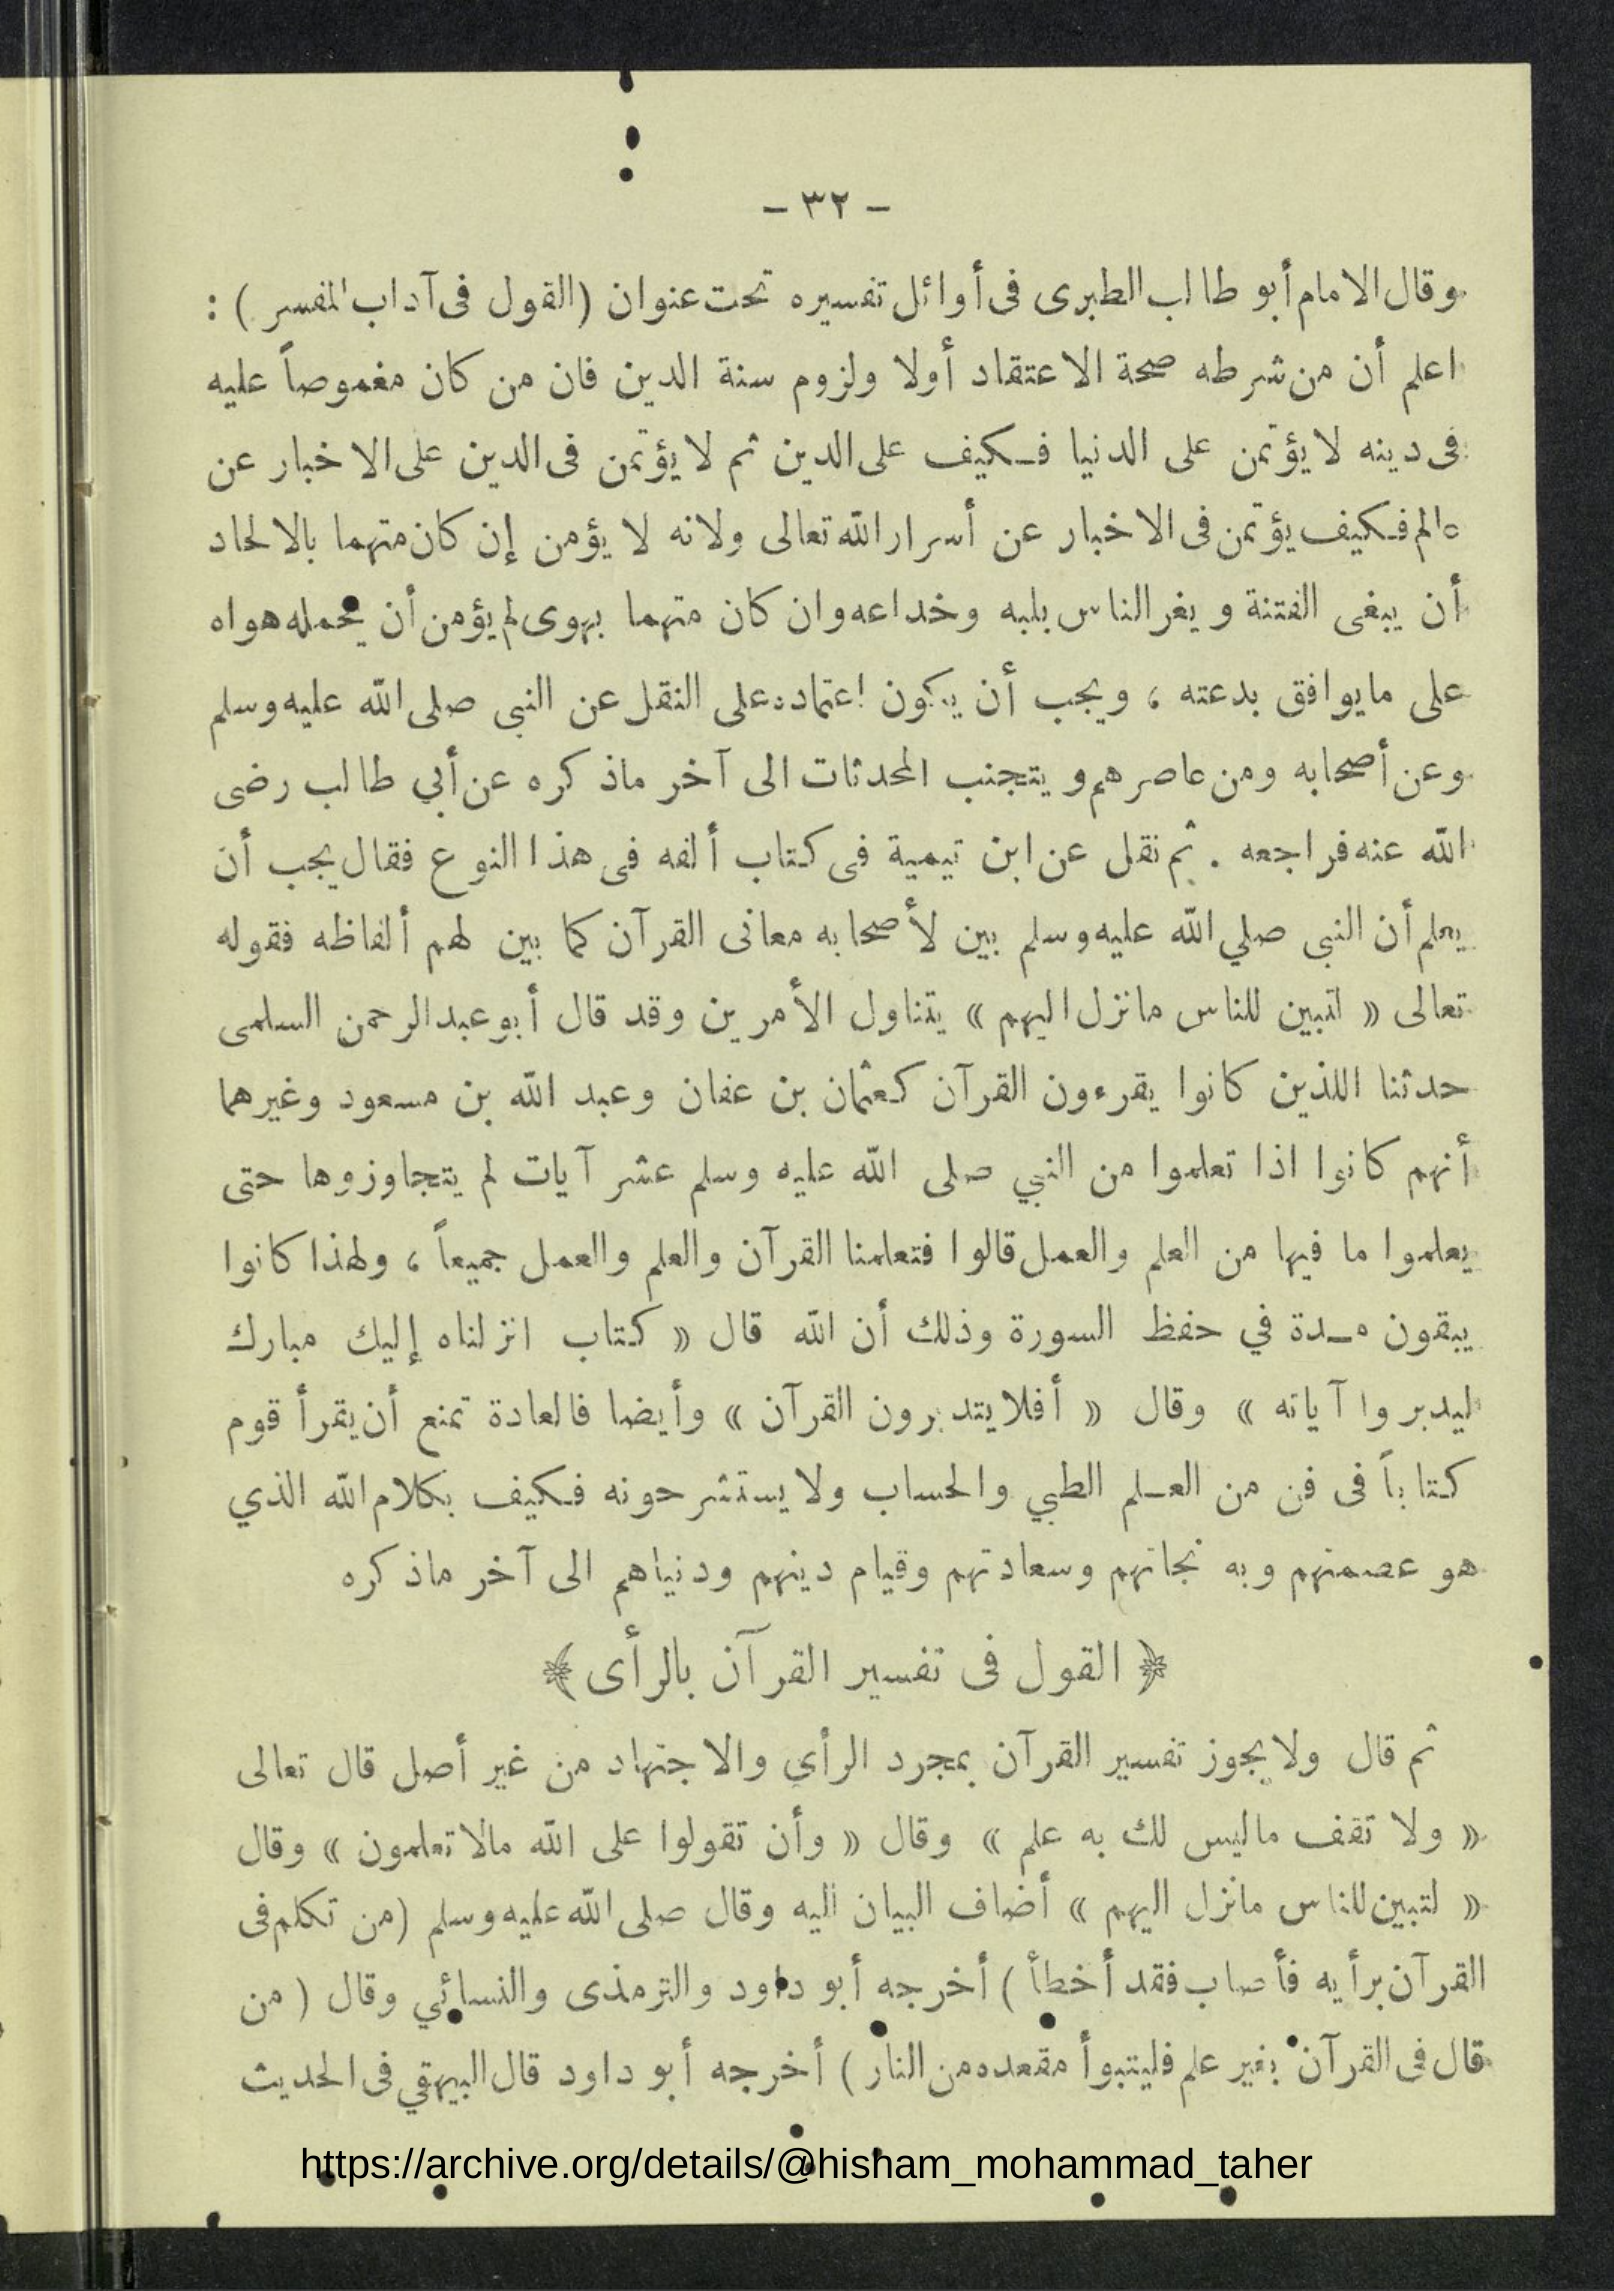 - ٣٢ -
وقال الامام أبو طالب الطبرى فى أوائل تفسيره تحت عنوان (القول فى آداب المفسر ) :
اعلم أن من شرطه صحة الاعتقاد أولا ولزوم سنة الدين فان من كان مغموصاً عليه
فى دينه لا يؤتمن على الدنيا فكيف على الدين ثم لا يؤتمن فى الدين على الاخبار عن
عالم فكيف يؤتمن فى الاخبار عن أسرار الله تعالى ولانه لا يؤمن إن كان متهما بالالحاد
أن يبغى الفتنة و يغر الناس بلبه وخداعه وان كان متهما بهوى لم يؤمن أن يحمله هواه
على مايوافق بدعته ، ويجب أن يكون اعتماده على النقل عن النبى صلى الله عليه وسلم
وعن أصحابه ومن عاصرهم و يتجنب المحدثات الى آخر ماذكره عن أبي طالب رضى
الله عنه فراجعه . ثم نقل عن ابن تيمية فى كتاب ألفه فى هذا النوع فقال يجب أن
يعلم أن النبى صلي الله عليه وسلم بين لأصحابه معانى القرآن كما بين لهم ألفاظه فقوله
تعالى « لتبين للناس مانزل اليهم » يتناول الأمرين وقد قال أبو عبد الرحمن السلمى
حدثنا اللذين كانوا يقرءون القرآن كعثمان بن عفان وعبد الله بن مسعود وغيرهما
أنهم كانوا اذا تعلموا من النبي صلى الله عليه وسلم عشر آيات لم يتجاوزوها حتى
يعلموا ما فيها من العلم والعمل قالوا فتعلمنا القرآن والعلم والعمل جميعاً ، ولهذا كانوا
يبقون مدة في حفظ السورة وذلك أن الله قال « كتاب انزلناه إليك مبارك
ليدبروا آياته » وقال « أفلا يتدبرون القرآن » وأيضا فالعادة تمنع أن يقرأ قوم
كتاباً فى فن من العلم الطبي والحساب ولا يستشرحونه فكيف بكلام الله الذي
هو عصمتهم وبه نجاتهم وسعادتهم وقيام دينهم ودنياهم الى آخر ماذكره
﴿ القول فى تفسير القرآن بالرأى ﴾
ثم قال ولا يجوز تفسير القرآن بمجرد الرأى والاجتهاد من غير أصل قال تعالى
« ولا تقف ماليس لك به علم » وقال « وأن تقولوا على الله مالا تعلمون » وقال
« لتبين للناس مانزل اليهم » أضاف البيان اليه وقال صلى الله عليه وسلم (من تكلم فى
القرآن برأيه فأصاب فقد أخطأ ) أخرجه أبو داود والترمذى والنسائي وقال ( من
قال فى القرآن بغير علم فليتبوأ مقعده من النار ) أخرجه أبو داود قال البيهقي فى الحديث
https://archive.org/details/@hisham_mohammad_taher